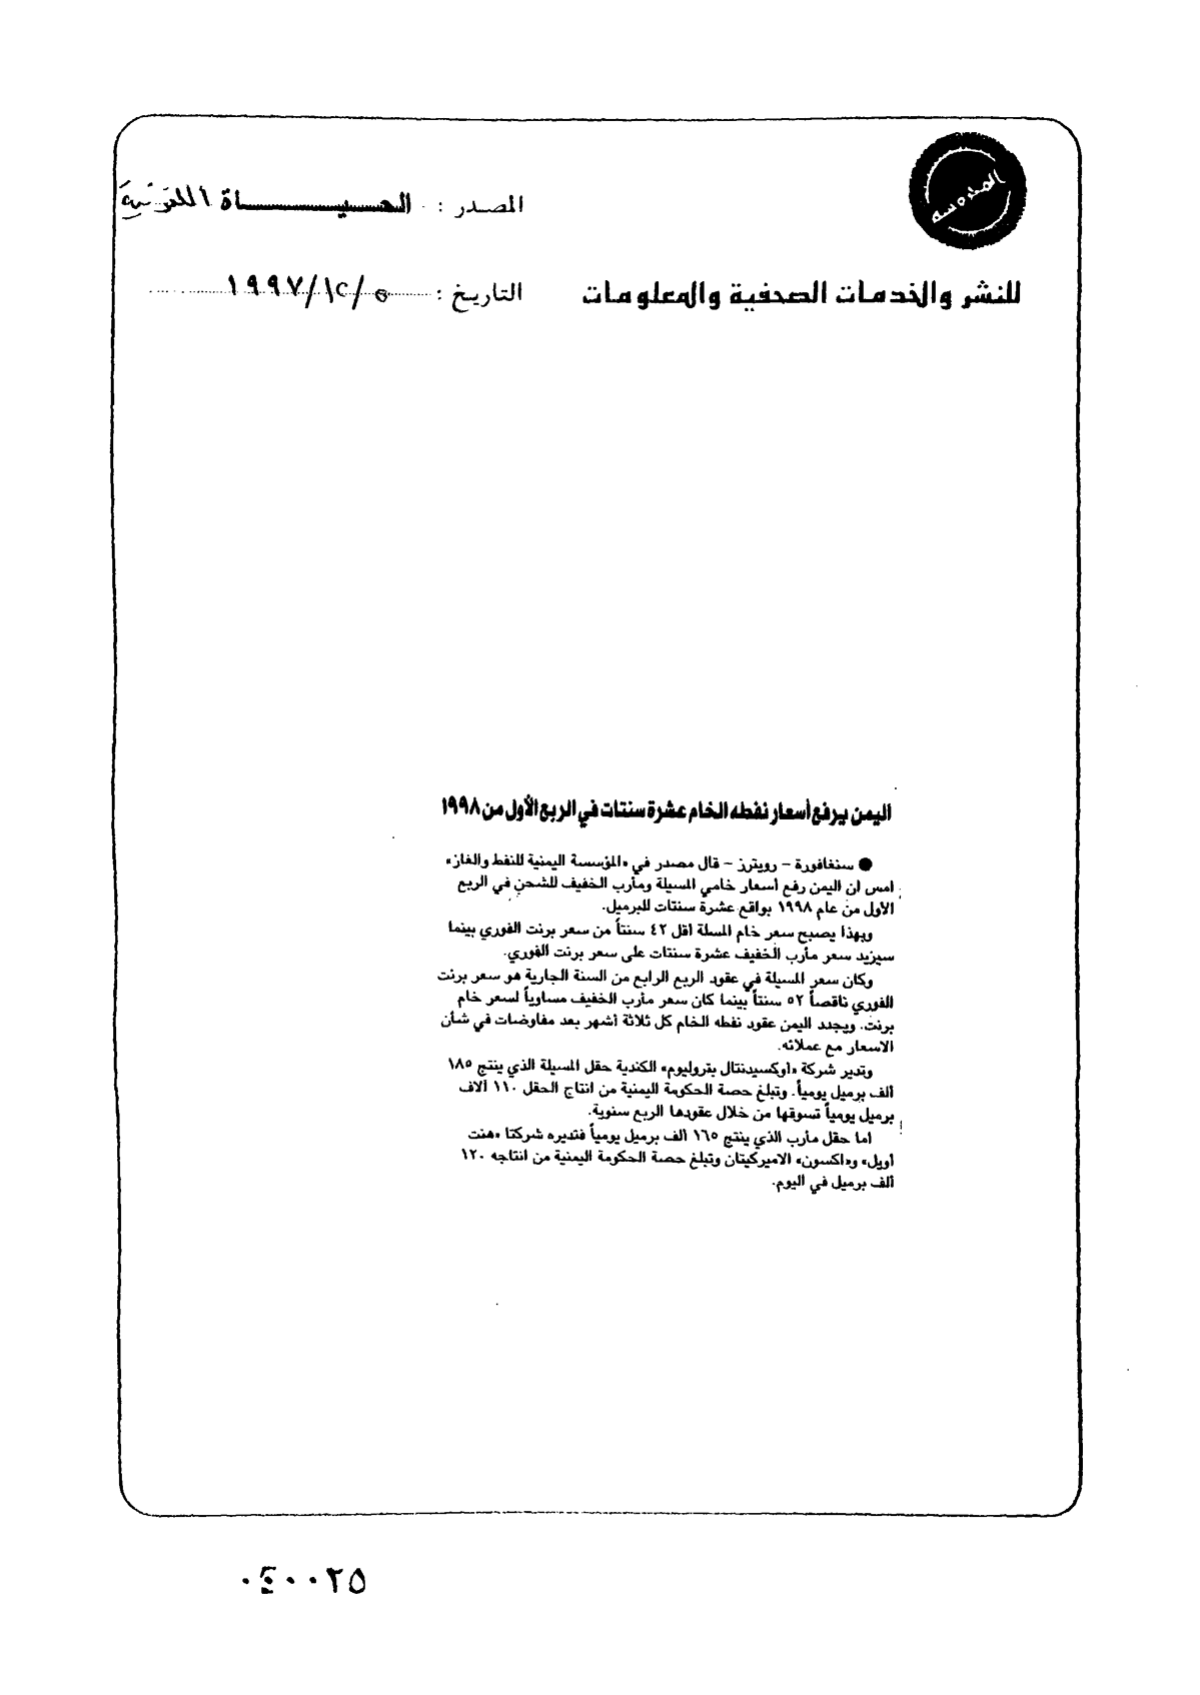 المصدر : الحيـــاة اللندنية
للنشر والخدمات الصحفية والمعلومات
التاريخ : ٥/١٢/١٩٩٧
اليمن يرفع أسعار نفطه الخام عشرة سنتات في الربع الأول من ١٩٩٨
● سنغافورة – رويترز – قال مصدر في «المؤسسة اليمنية للنفط والغاز»
امس ان اليمن رفع أسعار خامي المسيلة ومأرب الخفيف للشحن في الربع
الأول من عام ١٩٩٨ بواقع عشرة سنتات للبرميل.
وبهذا يصبح سعر خام المسلة اقل ٤٢ سنتاً من سعر برنت الفوري بينما
سيزيد سعر مأرب الخفيف عشرة سنتات على سعر برنت الفوري.
وكان سعر المسيلة في عقود الربع الرابع من السنة الجارية هو سعر برنت
الفوري ناقصاً ٥٢ سنتاً بينما كان سعر مأرب الخفيف مساوياً لسعر خام
برنت. ويجدد اليمن عقود نفطه الخام كل ثلاثة أشهر بعد مفاوضات في شأن
الاسعار مع عملائه.
وتدير شركة «اوكسيدنتال بتروليوم» الكندية حقل المسيلة الذي ينتج ١٨٥
ألف برميل يومياً. وتبلغ حصة الحكومة اليمنية من انتاج الحقل ١١٠ آلاف
برميل يومياً تسوقها من خلال عقودها الربع سنوية.
اما حقل مأرب الذي ينتج ١٦٥ الف برميل يومياً فتديره شركتا «هنت
أويل» و«اكسون» الاميركيتان وتبلغ حصة الحكومة اليمنية من انتاجه ١٢٠
ألف برميل في اليوم.
٠٤٠٠٢٥